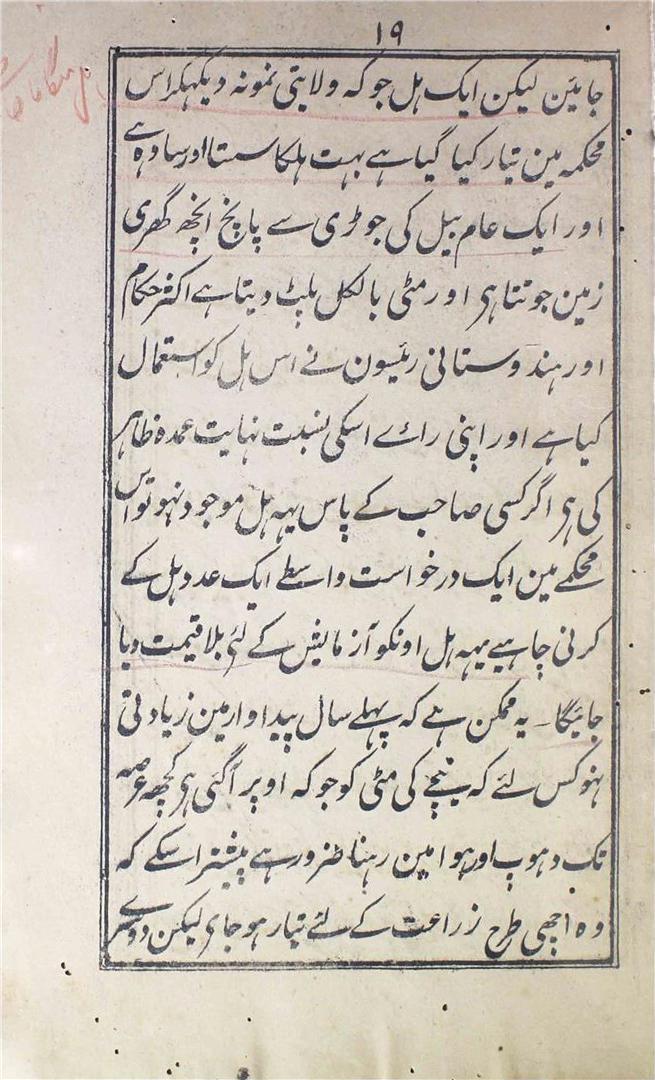 ۱۹
جائین لیکن ایک ہل جو کہ ولایتی نمونہ دیکھکر اس
محکمہ مین تیار کیا گیا ہے بہت ہلکا سستا اور سادہ ہے
اور ایک عام بیل کی جوڑی سے پانچ انچھ گھری
زمین جوتتا ہی اور مٹی بالکل پلٹ دیتا ہے اکثر حکام
اور ہندوستانی رئیسون نے اس ہل کو استعمال
کیا ہے اور اپنی رائے اسکی نسبت نہایت عمدہ ظاہر
کی ہی اگر کسی صاحب کے پاس یہہ ہل موجود نہو تو اس
محکمے مین ایک درخواست واسطے ایک عدد ہل کے
کرنی چاہیے یہہ ہل اونکو آزمایش کے لئے بلا قیمت دیا
جائیگا ۔ یہ ممکن ہے کہ پہلے سال پیداوار مین زیادتی
نہو کس لئے کہ نیچے کی مٹی کو جو کہ اوپر آگئی ہی کچھ عرصہ
تک دہوپ اور ہوا مین رہنا ضرور ہے پیشتر اسکے کہ
وہ اچھی طرح زراعت کے لئے تیار ہو جای لیکن دوسرے